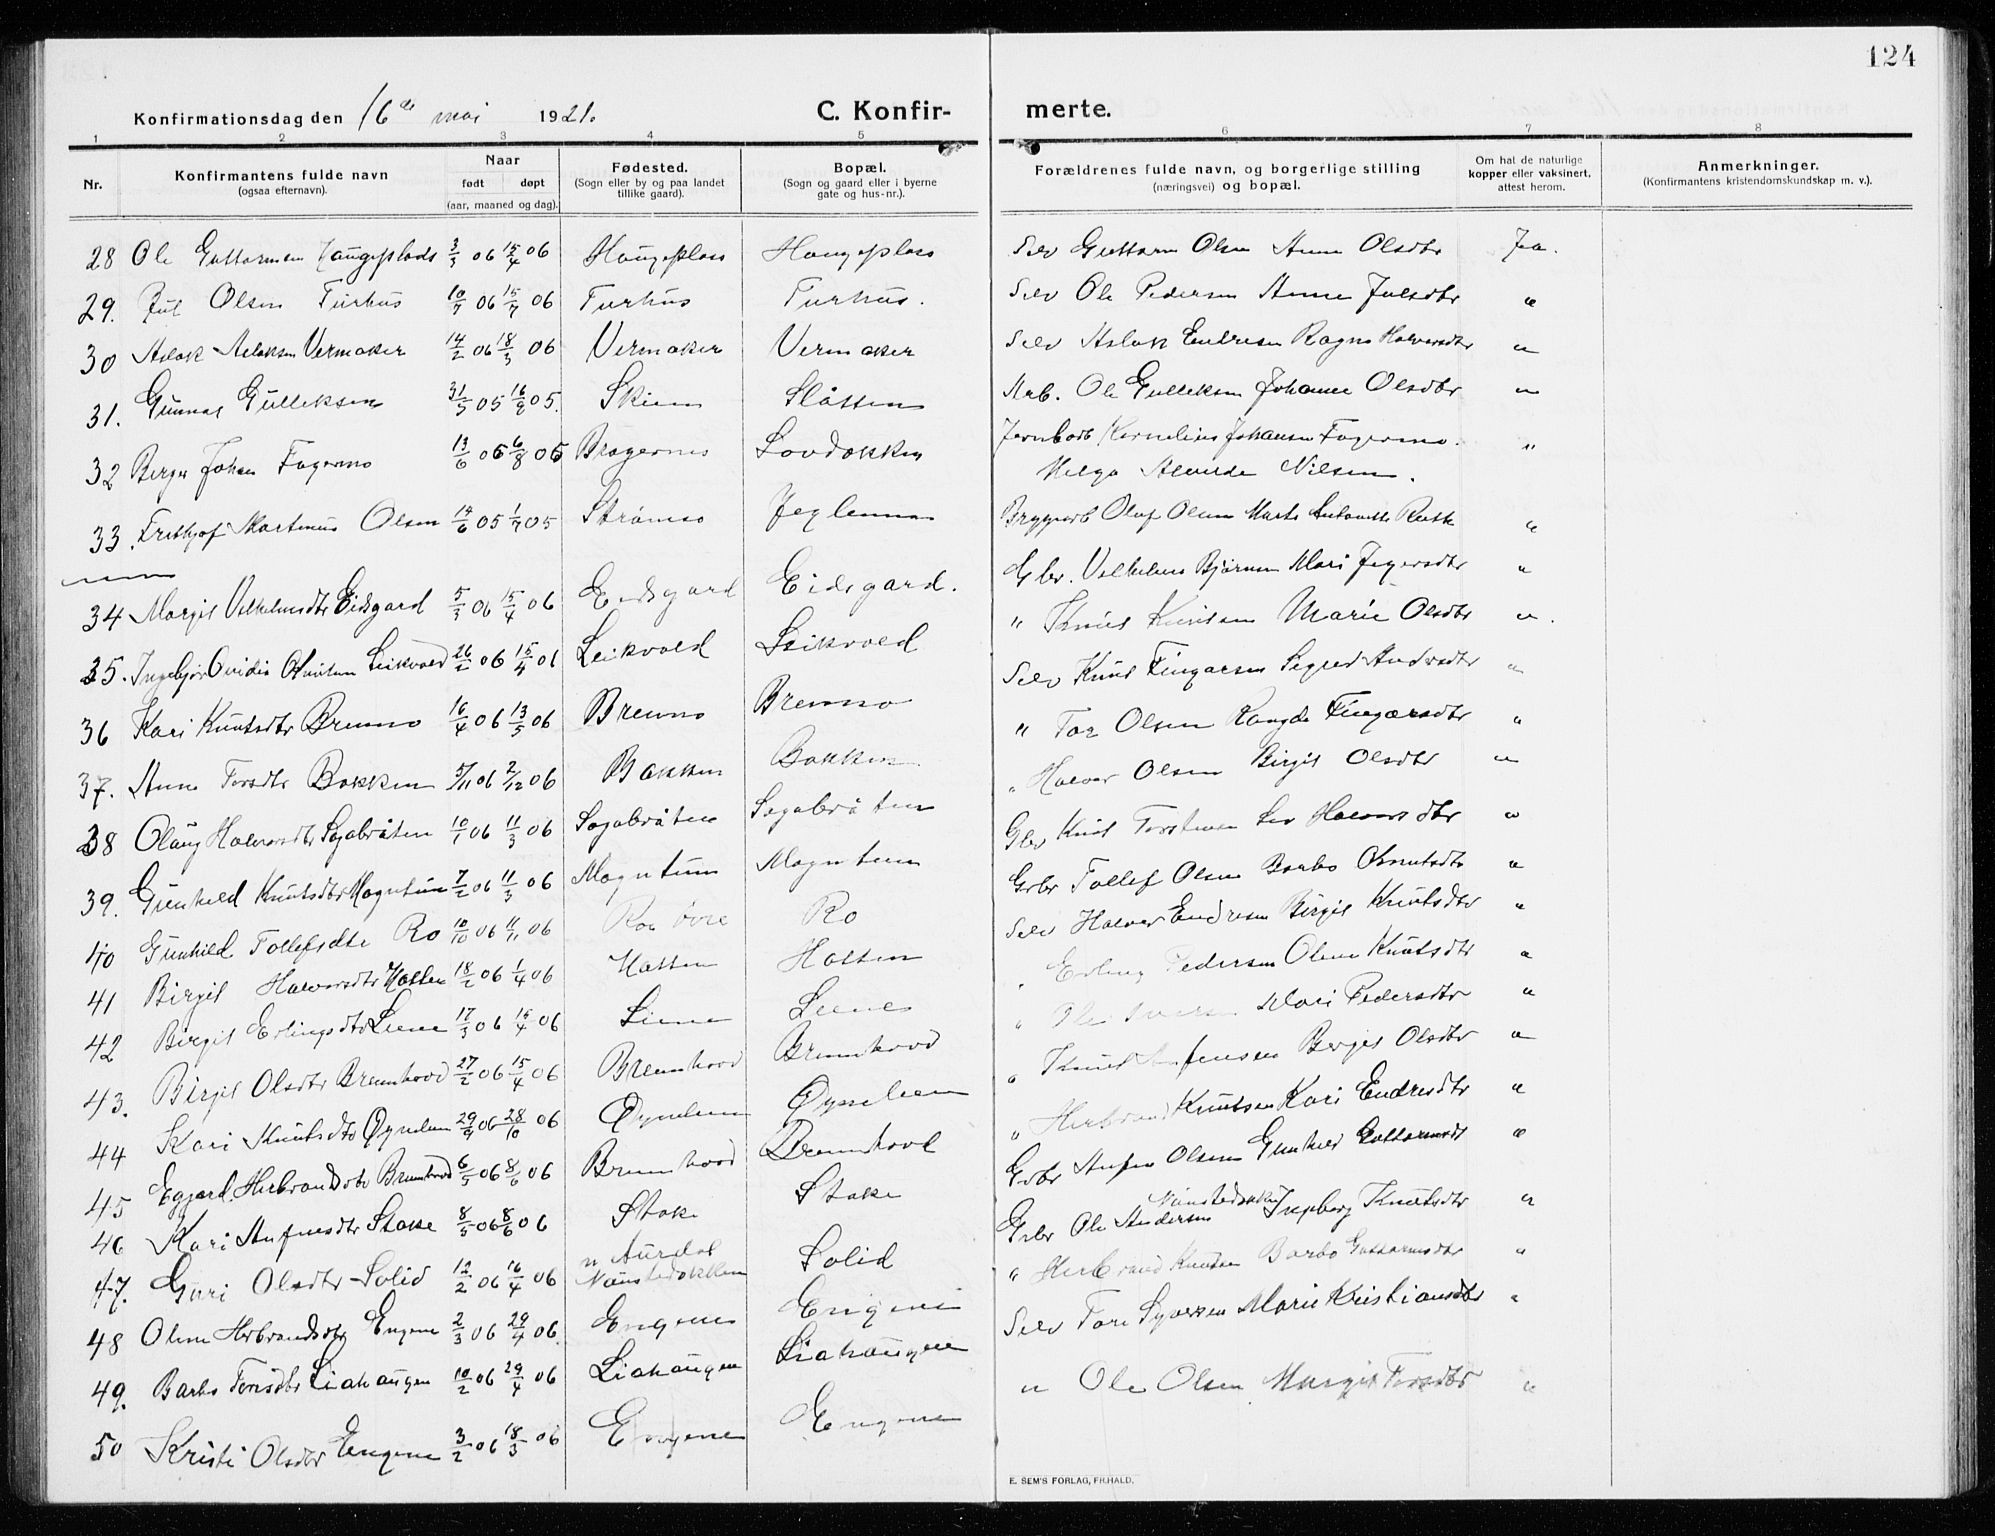 124
Konfirmationsdag den 16de mai 1921. C. Konfir- merte.
1 2 3 4 5 6 7 8
Nr.
Konfirmantens fulde navn
(ogsaa efternavn).
Naar
født døpt
(aar, maaned og dag).
Fødested.
(Sogn eller by og paa landet
tillike gaard).
Bopæl.
(Sogn og gaard eller i byerne
gate og hus-nr.).
Forældrenes fulde navn, og borgerlige stilling
(næringsvei) og bopæl.
Om hat de naturlige
kopper eller vaksinert,
attest herom.
Anmerkninger.
(Konfirmantens kristendomskundskap m. v.).
28 Ole Guttormsen Haugeplads 3/3 06 15/4 06 Haugeplass Haugeplass Selv Guttorm Olsen Anne Olsdtr Ja.
29. Jul Olsen Turhus 10/7 06 15/7 06 Turhus Turhus. Selv Ole Pedersen Anne Julsdtr "
30 Aslak Aslaksen Vermaker 14/2 06 18/3 06 Vermaker Vermaker Selv Aslak Endresen Ragne Halvorsdtr "
31. Gunnar Gulleksen 31/5 05 16/9 05. Skien Slåtten Arb. Ole Gulleksen Johanne Olsdtr "
32 Birger Johan Fagermo 13/6 06 6/8 06 Bragernes Lovdokken Jernbarb Kornelius Johansen Fagermo. "
Helga Alvilde Nilsen.
33. Frithjof Martinus Olsen 14/6 05 1/7 05 Strømsø Jeglemma Bryggarb Olaf Olsen "
34 Margit Vilhelmsdtr Eidsgard 5/3 06 15/4 06 Eidsgard Eidsgard. Gbr. Vilhelm Bjørnsen Mari "
35. Ingebjør Ovidia Leikvold 26/2 06 15/4 06 Leikvold Leikvold " Knut Knutsen Marie Olsdtr ".
36 Kari Knutsdtr Bremno 16/4 06 13/5 06 Bremno Bremno Selv Knut Fingarsen Sigrid Andrsdtr "
37. Anne Torsdtr Bakken 5/11 06 2/12 06 Bakken Bakken " Tor Olsen Rangdi Fingarsdtr "
38 Olaug Halvorsdtr Sagabråten 10/1 06 11/3 06 Sagabråten Sagabråten " Halvor Olsen Birgit Olsdtr "
39. Gunhild Knutsdtr Magntun 7/2 06 11/3 06 Magntun Magntun Gbr Knut Torstensen Liv Halvorsdtr "
40 Gunhild Tollefsdtr Ro 10/10 06 11/11 06 Roe øvre Ro Gbr Tollef Olsen Barbo Knutsdtr "
41 Birgit Halvorsdtr Hatten 18/2 06 1/4 06 Hatten Hatten Selv Halvor Endresen Birgit Knutsdtr "
42 Birgit Erlingsdtr Liene 17/3 06 15/4 06 Liene Liene " Erling Pedersen Olene Knutsdtr "
43. Birgit Olsdtr Brennhovd 27/2 06 15/4 06 Brennhovd Brennhovd " Ole Iversen Mari Pedersdtr "
44 Kari Knutsdtr Øynelien 29/9 06 28/10 06 Øynelien Øynelien " Knut Birgit Olsdtr "
45 Eggjerd Herbrandsdtr Brennhovd 6/5 06 8/6 06 Brennhovd Brennhovd " Herbrand Knutsen Kari Endresdtr "
46 Kari Anfinsdtr Stake 8/5 06 8/6 06 Stake Stake Gbr Anfin Olsen Gunhild Guttormsdtr "
47. Guri Olsdtr Solid 12/2 06 16/4 06 n Aurdal Solid Gbr Ole Andersen Ingeborg Knutsdtr "
48 Oline Herbrandsdtr Engene 2/3 06 29/4 06 Engene Engene " Herbrand Knutsen Barbo Guttormsdtr "
49. Barbo Toresdtr Liahaugen 10/2 06 29/4 06 Liahaugen Liahaugen Selv Tore Syversen Marie Kristiansdtr "
50 Kristi Olsdtr Engene 3/2 06 18/3 06 Engene Engene " Ole Olsen Margit Torsdtr "
E. SEM'S FORLAG, FR.HALD.